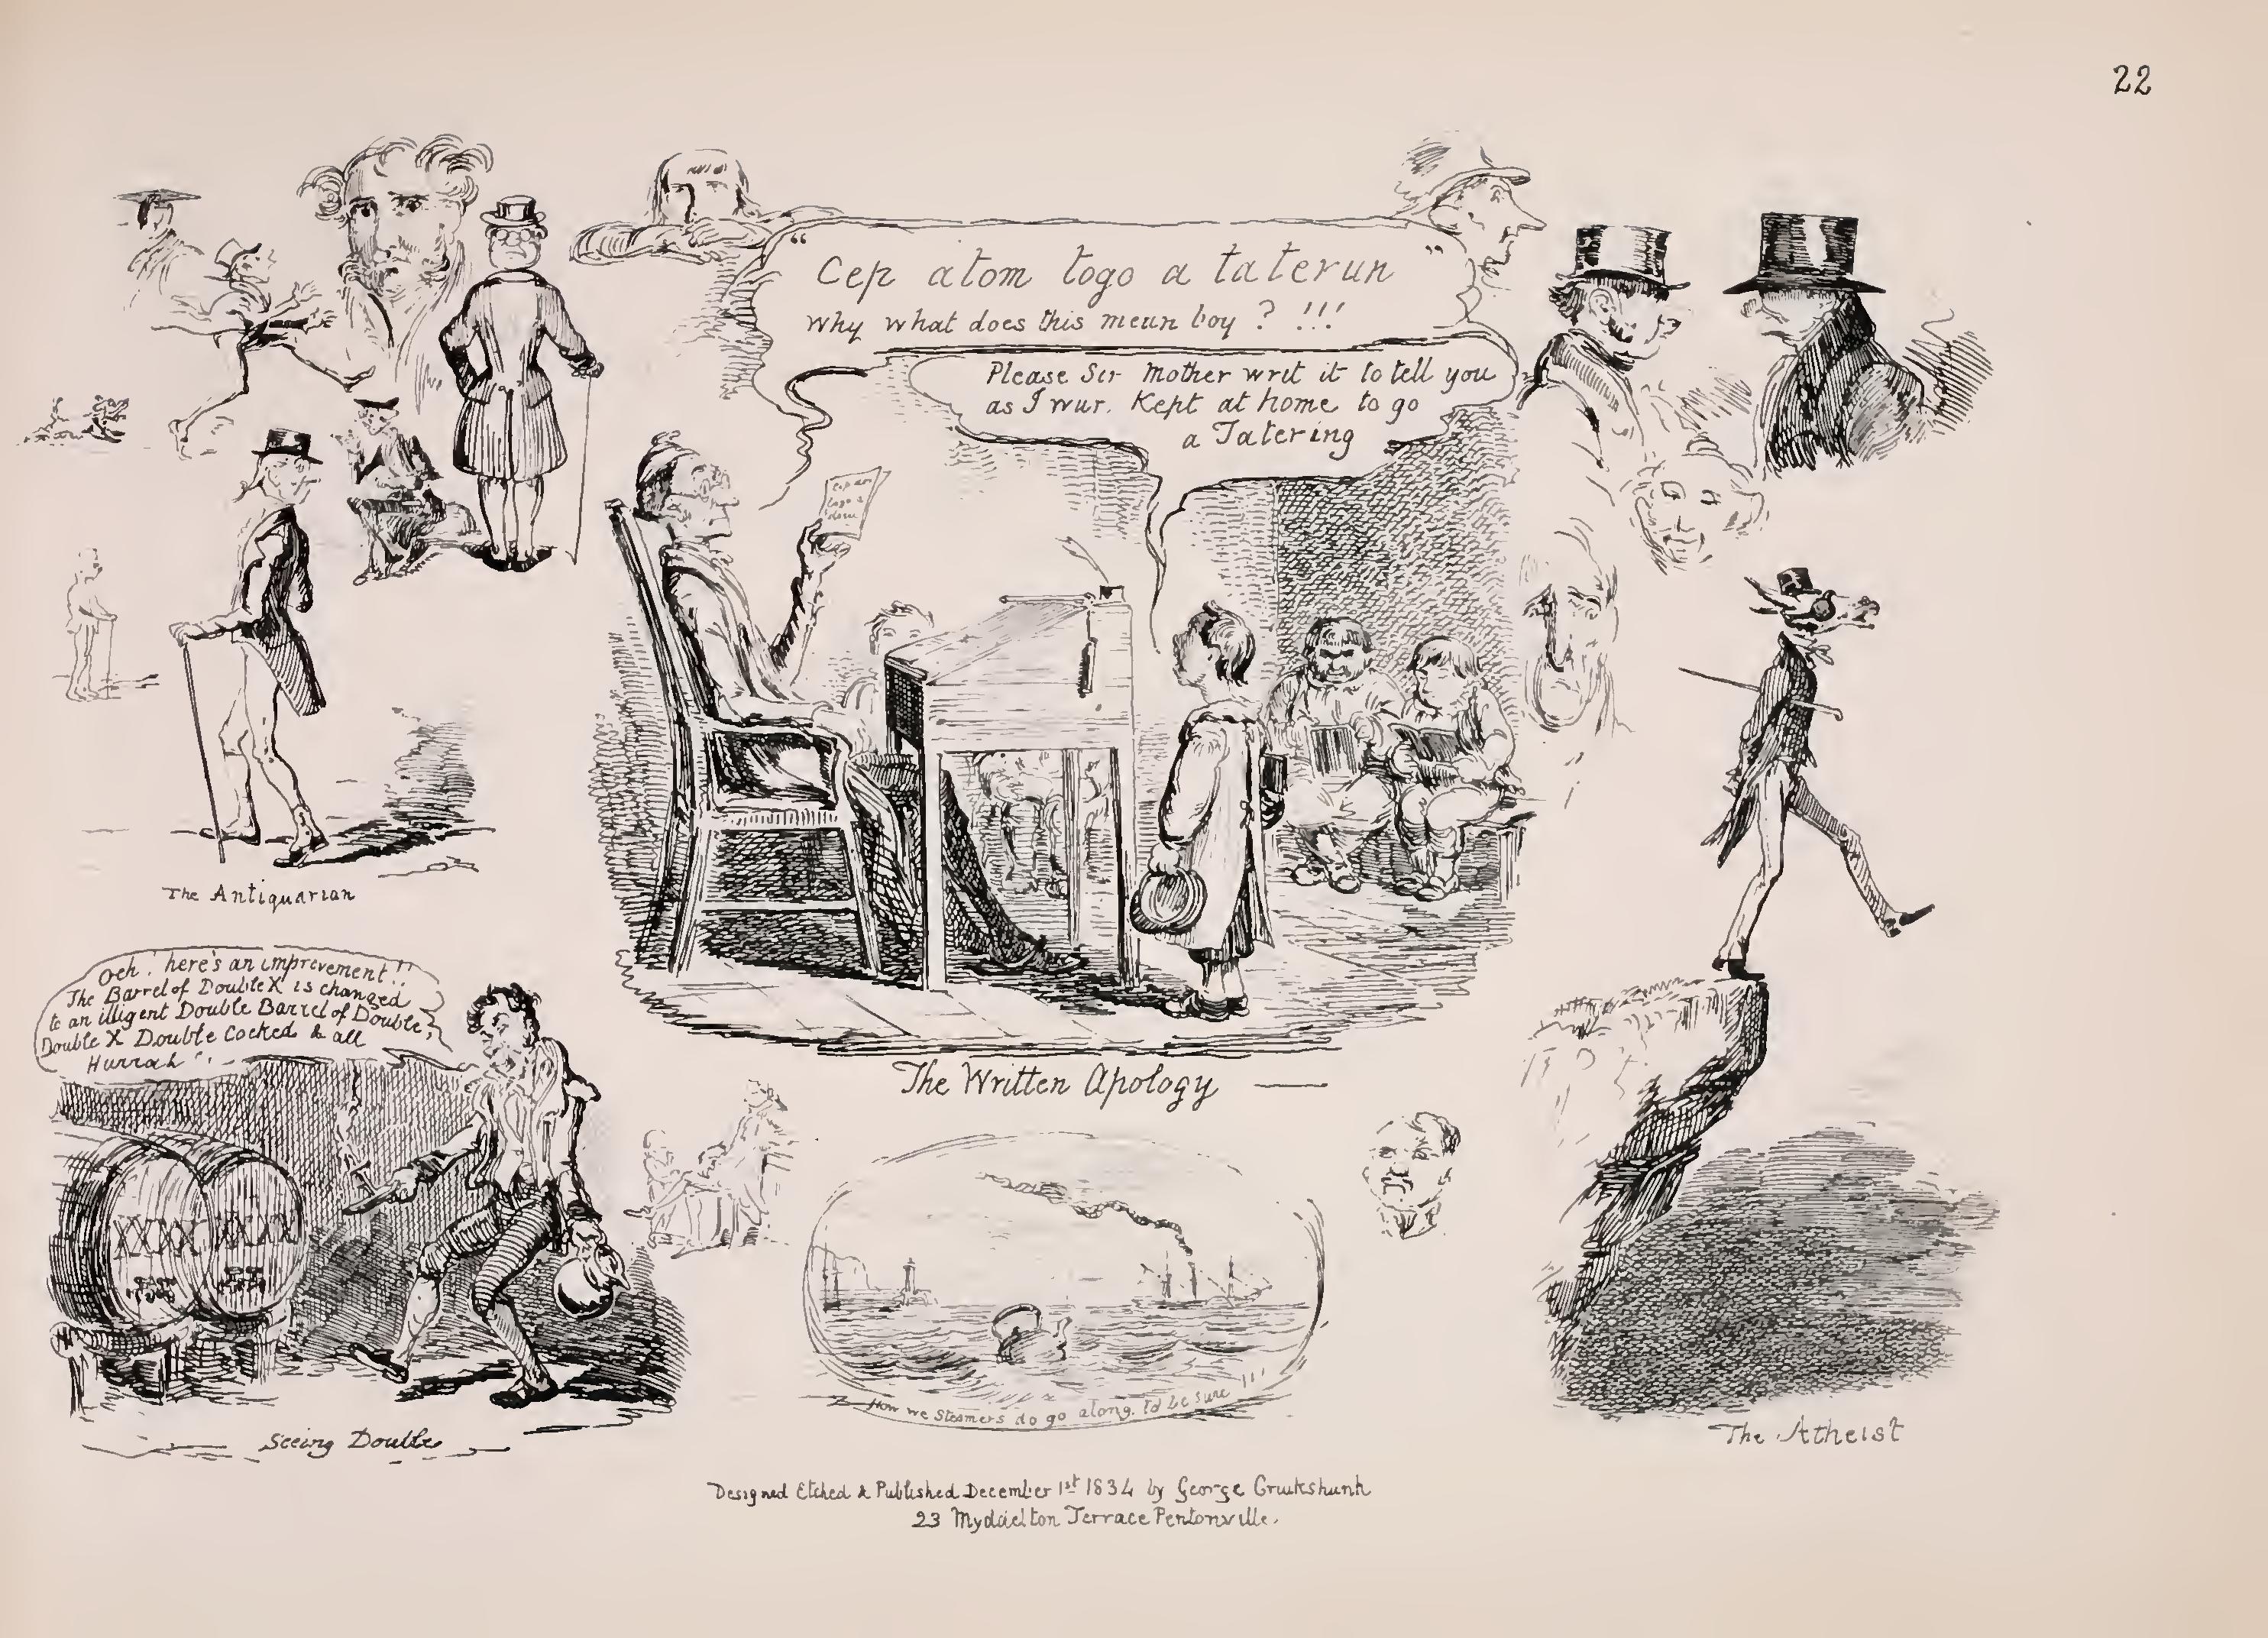 22
" Cep atom togo a taterun "
why what does this mean boy ? !!!
Please Sir Mother writ it to tell you
as I wur. Kept at home to go
a Tatering
The Antiquarian
Och! here's an improvement!!
The Barrel of Double X is changed
to an illigent Double Barrel of Double,
Double X Double Cocked & all
Hurrah!!
The Written Apology
XXXX XXXX
How we Steamers do go along. to be sure !!!
Seeing Double
The Atheist
Designed Etched & Published December 1st 1834 by George Cruikshank
23 Myddelton Terrace Pentonville.